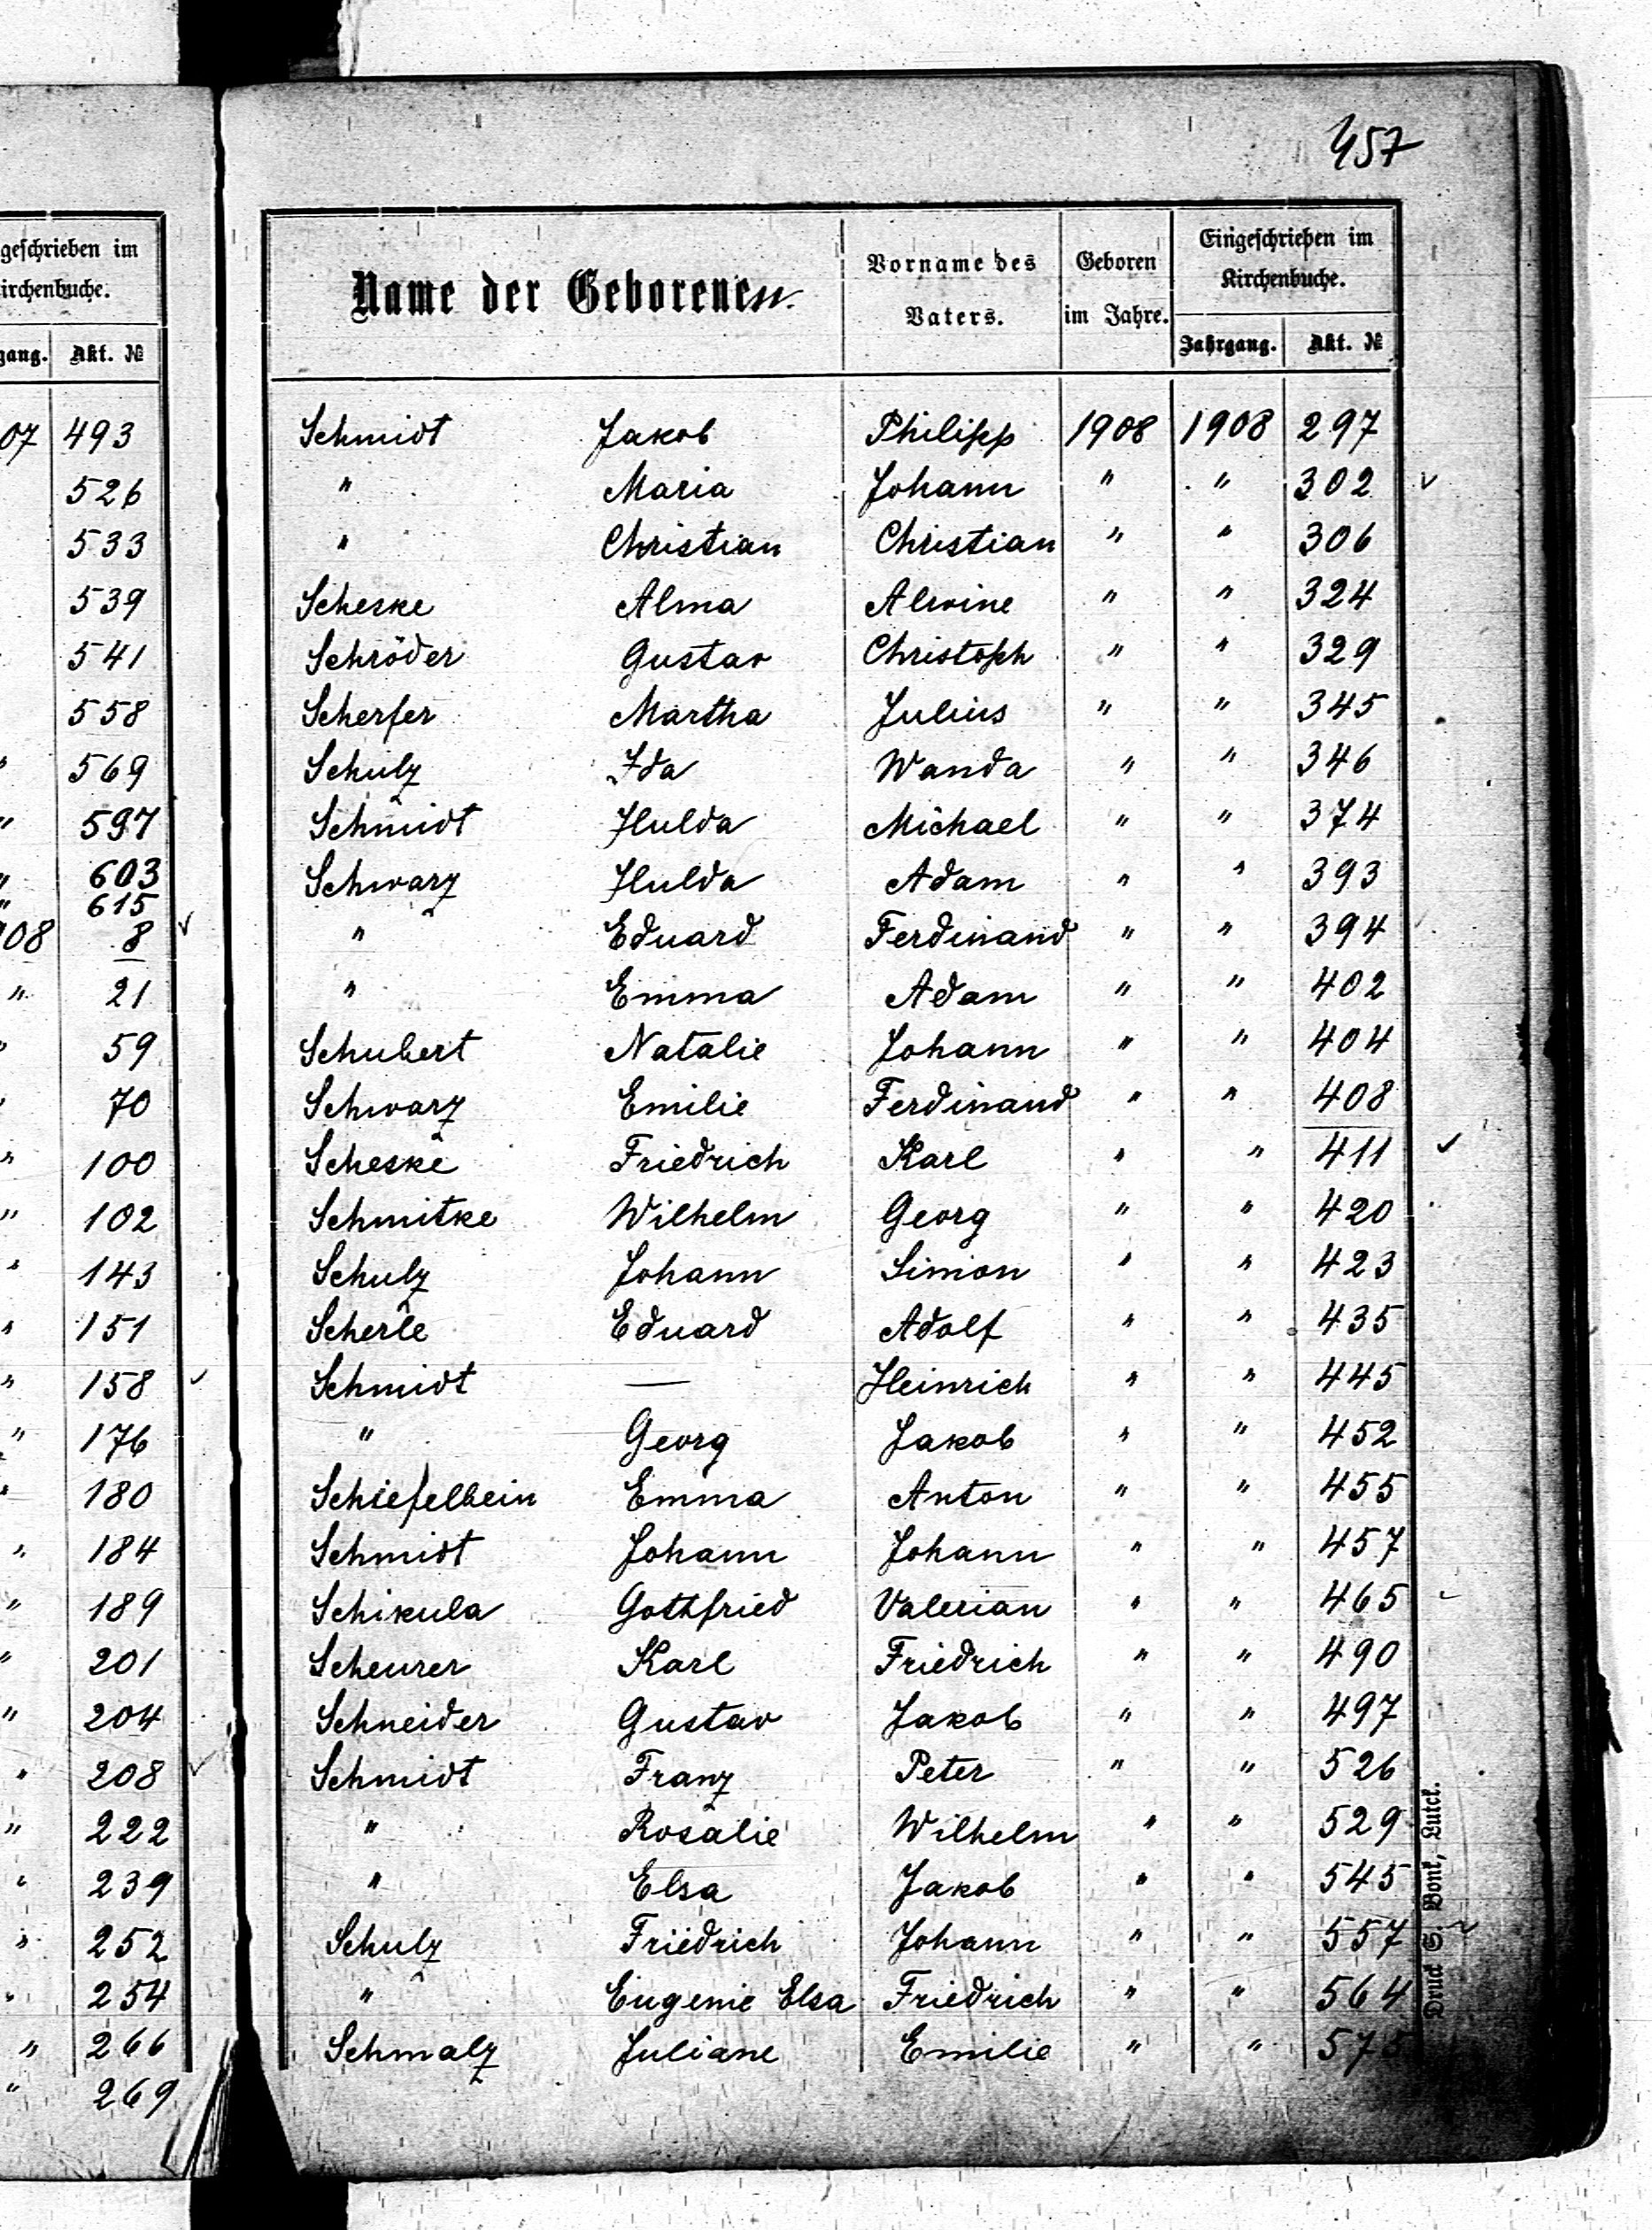 457
geschrieben im
irchenbuche.
gang. Akt. №
07 493
526
533
539
541
558
" 569
" 597
" 603
" 615
08 8
" 21
" 59
" 70
" 100
" 102
" 143
" 151
" 158
" 176
" 180
" 184
" 189
" 201
" 204
" 208
" 222
" 239
" 252
" 254
" 266
" 269
Name der Geborenen. Vorname des Vaters. Geboren im Jahre. Eingeschrieben im Kirchenbuche.
Jahrgang. Akt. №
Schmidt Jakob Philipp 1908 1908 297
" Maria Johann " " 302
" Christian Christian " " 306
Scheske Alma Alwine " " 324
Schröder Gustav Christoph " " 329
Scherfer Martha Julius " " 345
Schulz Ida Wanda " " 346
Schmidt Hulda Michael " " 374
Schwarz Hulda Adam " " 393
" Eduard Ferdinand " " 394
" Emma Adam " " 402
Schubert Natalie Johann " " 404
Schwarz Emilie Ferdinand " " 408
Scheske Friedrich Karl " " 411
Schmitke Wilhelm Georg " " 420
Schulz Johann Simon " " 423
Scherle Eduard Adolf " " 435
Schmidt — Heinrich " " 445
" Georg Jakob " " 452
Schiefelbein Emma Anton " " 455
Schmidt Johann Johann " " 457
Schikula Gothfried Valerian " " 465
Scheurer Karl Friedrich " " 490
Schneider Gustav Jakob " " 497
Schmidt Franz Peter " " 526
" Rosalie Wilhelm " " 529
" Elsa Jakob " " 545
Schulz Friedrich Johann " " 557
" Eugenie Elsa Friedrich " " 564
Schmalz Juliane Emilie " "
Druck S. Bonk, Lutck.